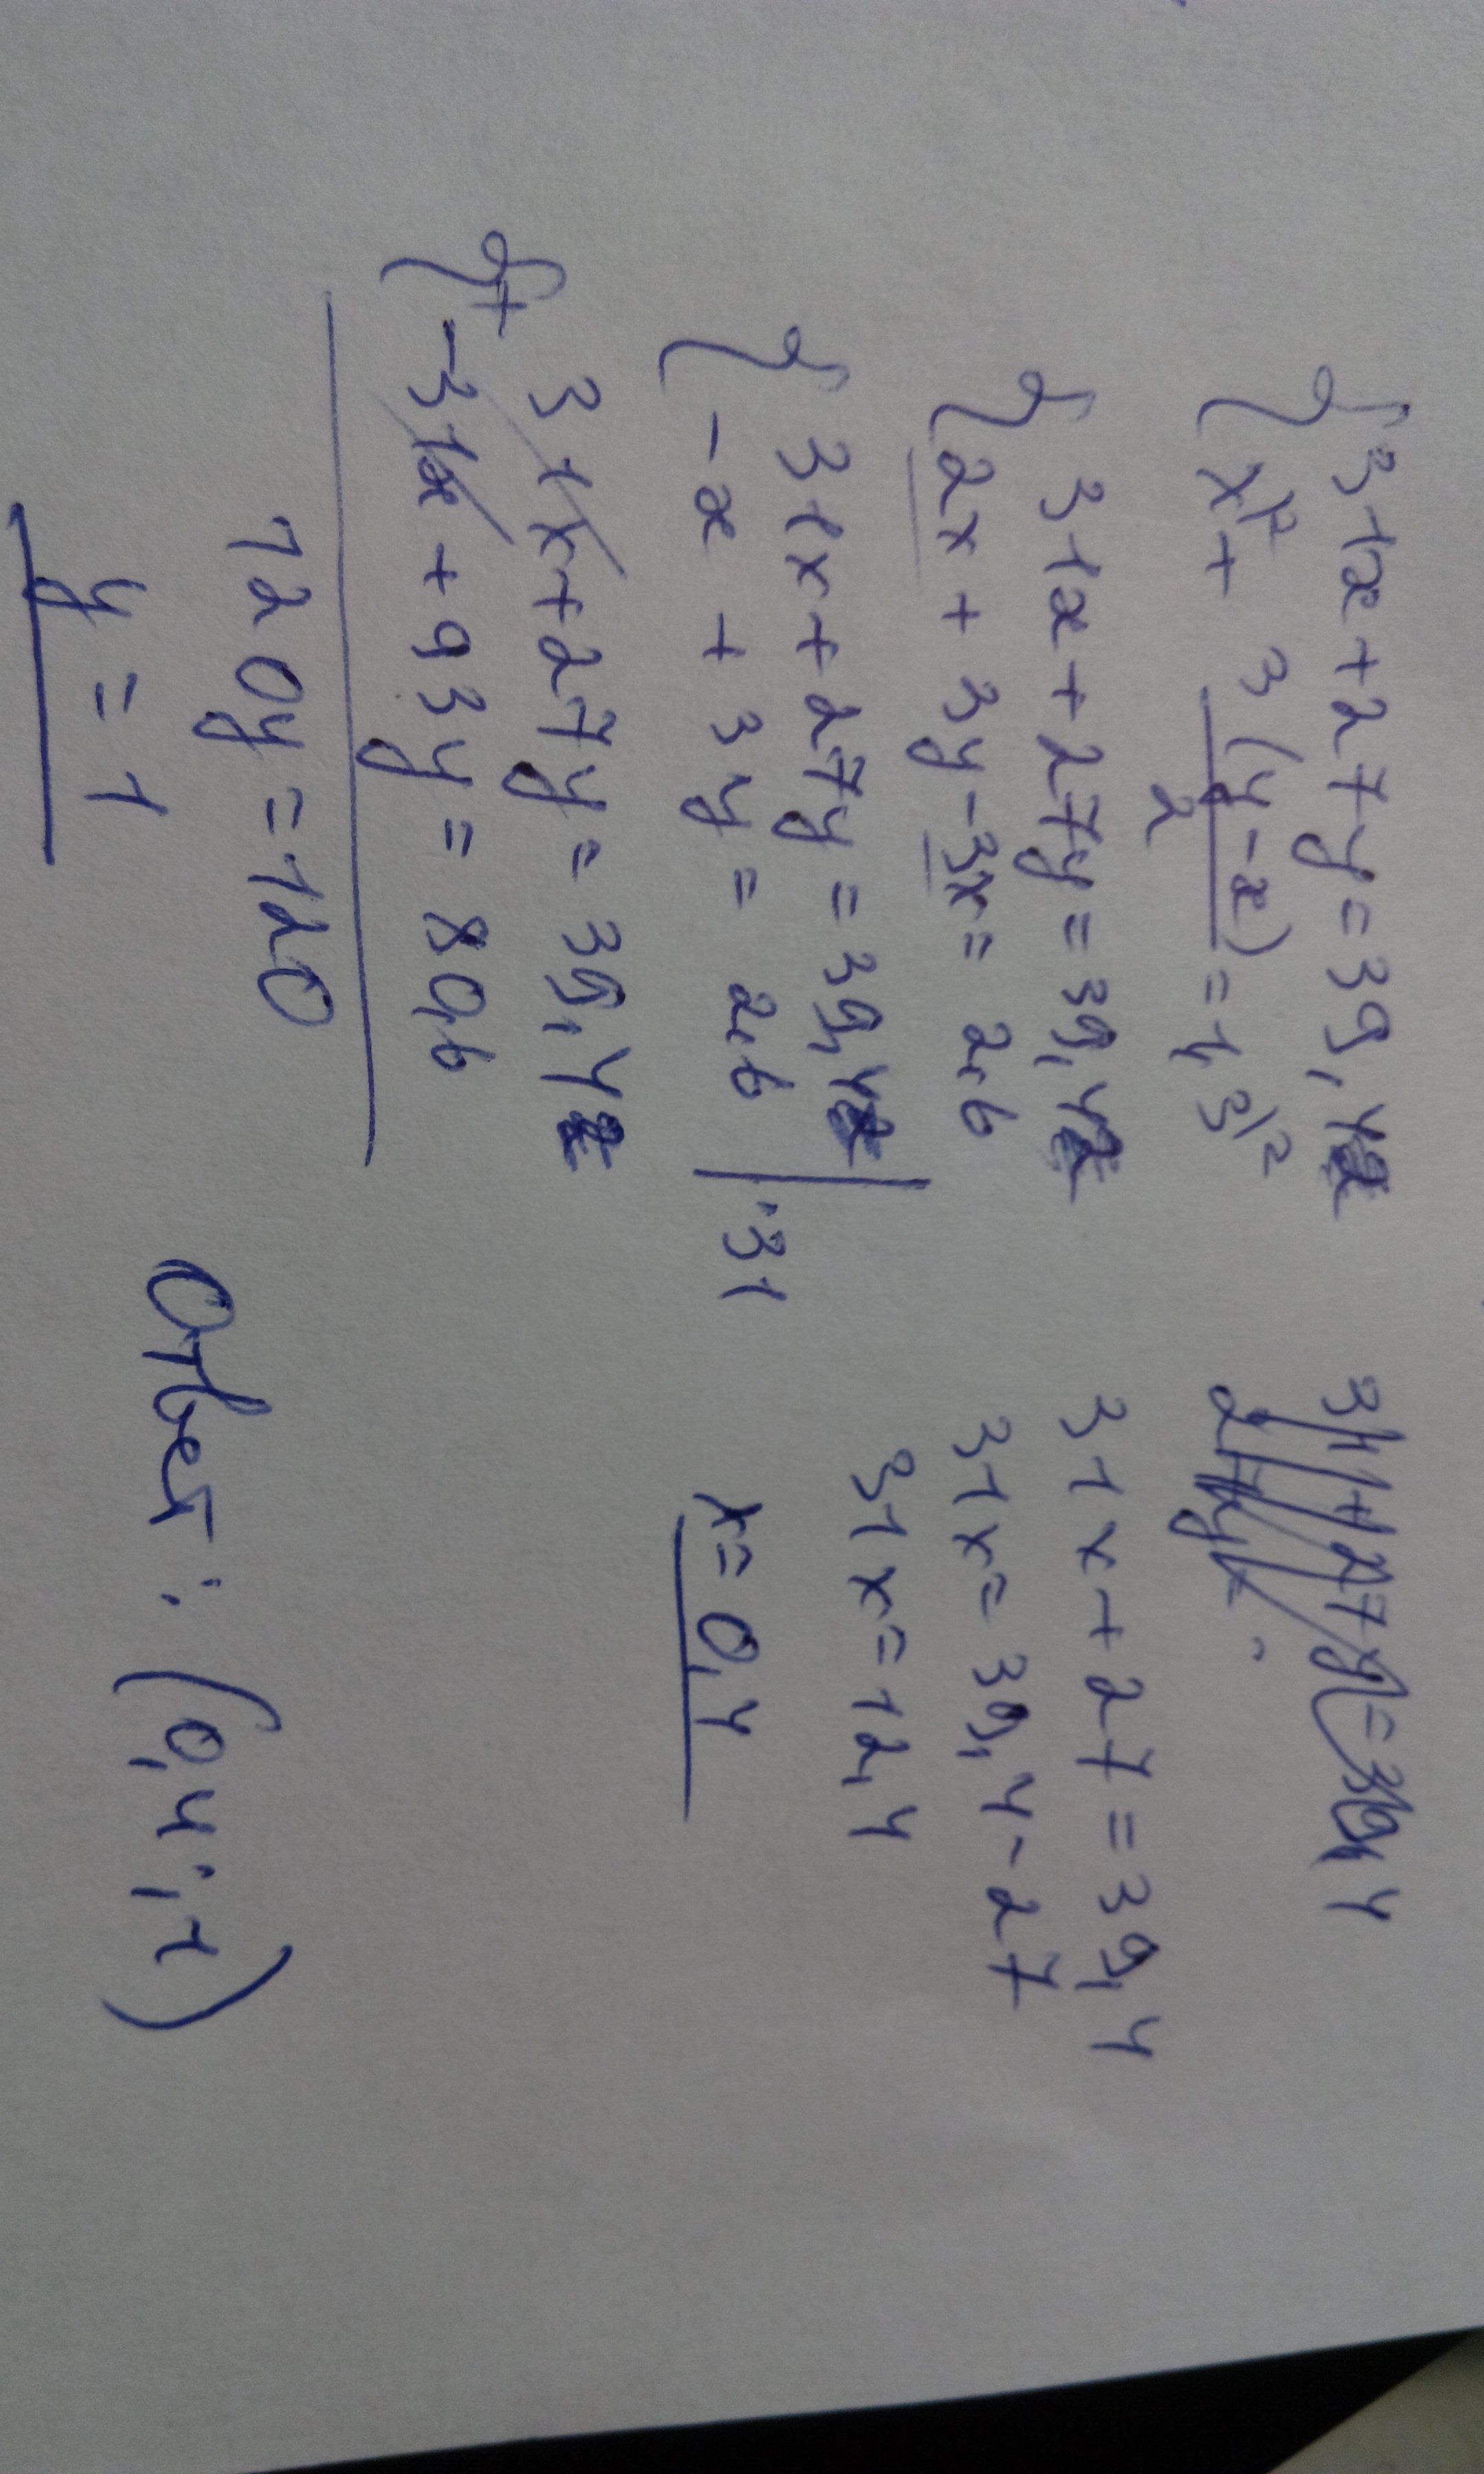 31x+27y=39,4
x|² + 3(y-x)/2 = 1,3|²
31x+27y=39,4
2x+3y-3x=2,6
31x+27y=39,4
-x+3y=2,6 |·31
31x+27y=39,4
+
-31x+93y=80,6
120y=120
y=1
31x+27=39,4
31x=39,4-27
31x=12,4
x=0,4
Ответ: (0,4;1)